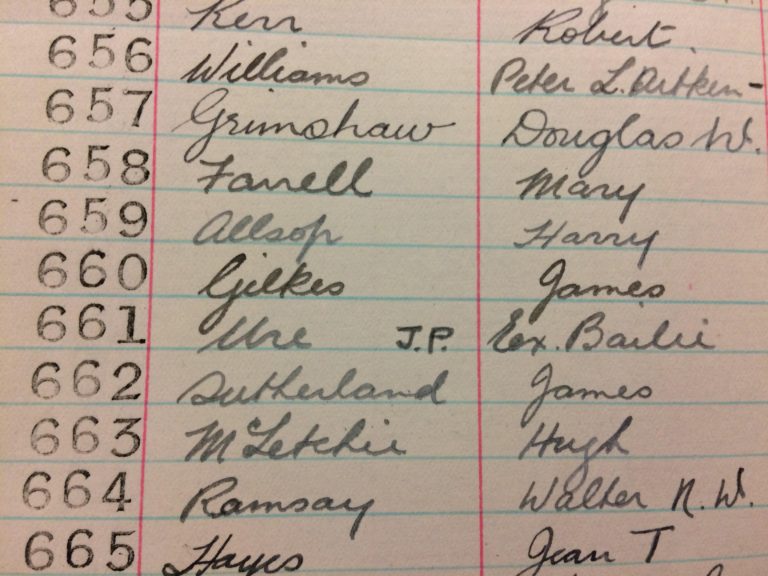 655 Kerr Robert.
656 Williams Peter L. Aitken-
657 Grimshaw Douglas W.
658 Farrell Mary
659 Allsop Harry
660 Gilkes James
661 Ure J.P. Ex. Bailie
662 Sutherland James
663 McLetchie Hugh
664 Ramsay Walter N. W.
665 Hayes Jean T